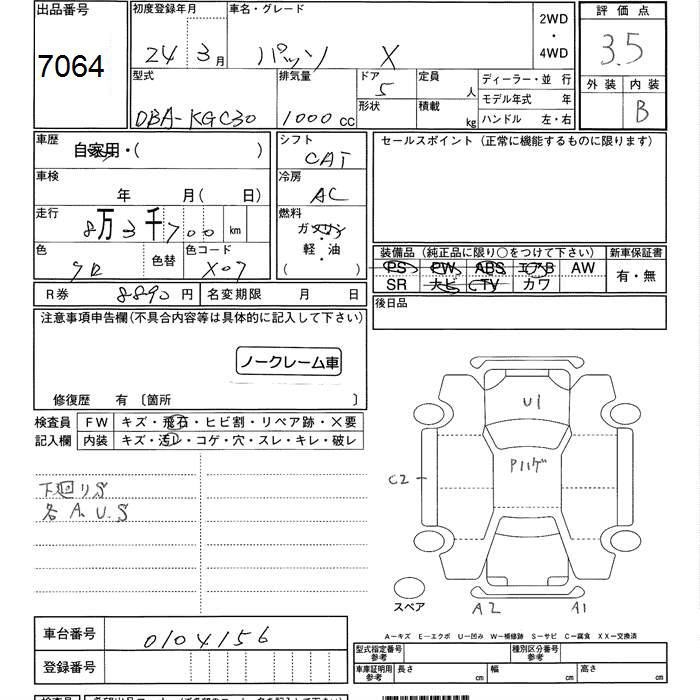 出品番号 7064
初度登録年月 24年3月
車名・グレード パッソ X
2WD・4WD
評価点 3.5
外装 内装 B
型式 DBA-KGC30
排気量 1000cc
ドア 5
形状
定員 人
積載 kg
ディーラー・並行
モデル年式 年
ハンドル 左・右
車歴 自家用・( )
車検 年 月(日)
走行 8万3千700km
色 クロ 色替
色コード X07
シフト CAT
冷房 AC
燃料 ガソリン・軽・油 ( )
セールスポイント(正常に機能するものに限ります)
装備品(純正品に限り○をつけて下さい) 新車保証書
PS PW ABS エアB AW 有・無
SR ナビ TV カワ
R券 8890円 名変期限 月 日
後日品
注意事項申告欄(不具合内容等は具体的に記入して下さい)
ノークレーム車
修復歴 有〔箇所 〕
検査員 FW キズ・飛石・ヒビ割・リペア跡・X要
記入欄 内装 キズ・汚レ・コゲ・穴・スレ・キレ・破レ
下廻りS
各A.U.S
U1
Pハゲ
C2
スペア
A2 A1
A-キズ E-エクボ U-凹み W-補修跡 S-サビ C-腐食 XX-交換済
車台番号 0104156
登録番号
型式指定番号 参考 種別区分番号 参考
車庫証明用 参考 長さ cm 幅 cm 高さ cm